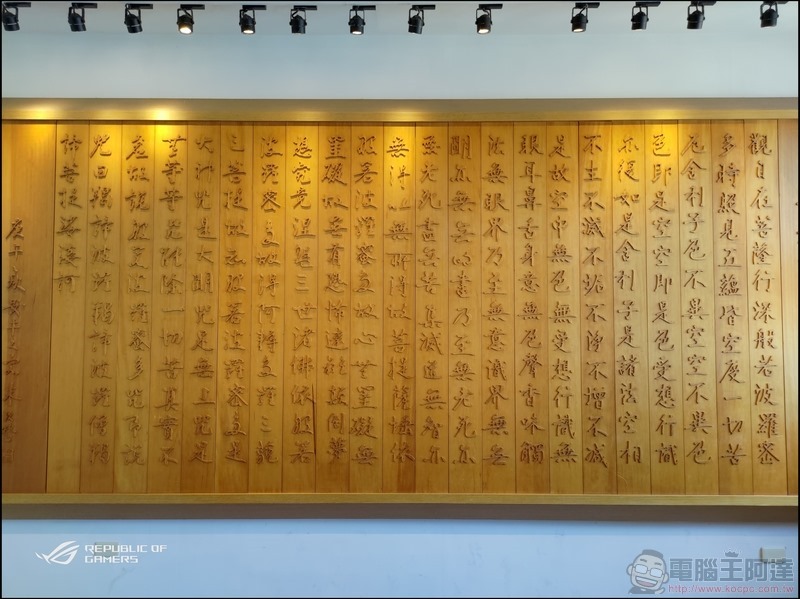 觀自在菩薩行深般若波羅蜜
多時照見五蘊皆空度一切苦
厄舍利子色不異空空不異色
色即是空空即是色受想行識
亦復如是舍利子是諸法空相
不生不滅不垢不淨不增不減
是故空中無色無受想行識無
眼耳鼻舌身意無色聲香味觸
法無眼界乃至無意識界無無
明亦無無明盡乃至無老死亦
無老死盡無苦集滅道無智亦
無得以無所得故菩提薩埵依
般若波羅蜜多故心無罣礙無
罣礙故無有恐怖遠離顛倒夢
想究竟涅槃三世諸佛依般若
波羅蜜多故得阿耨多羅三藐
三菩提故知般若波羅蜜多是
大神咒是大明咒是無上咒是
無等等咒能除一切苦真實不
虛故說般若波羅蜜多咒即說
咒曰羯諦波羅羯諦波羅僧羯
諦菩提娑婆訶
REPUBLIC OF
GAMERS
電腦王阿達
http://www.kocpc.com.tw